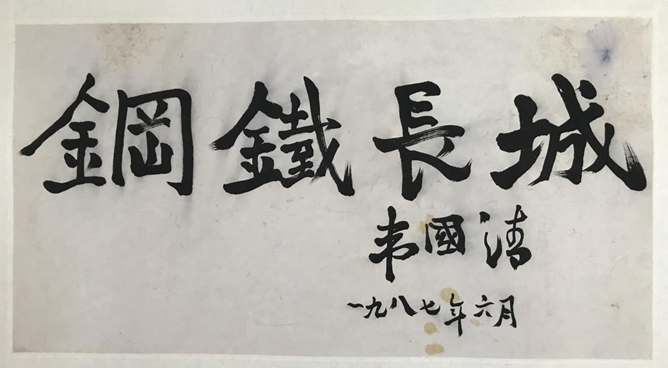 鋼鐵長城
韦國清
一九八七年六月